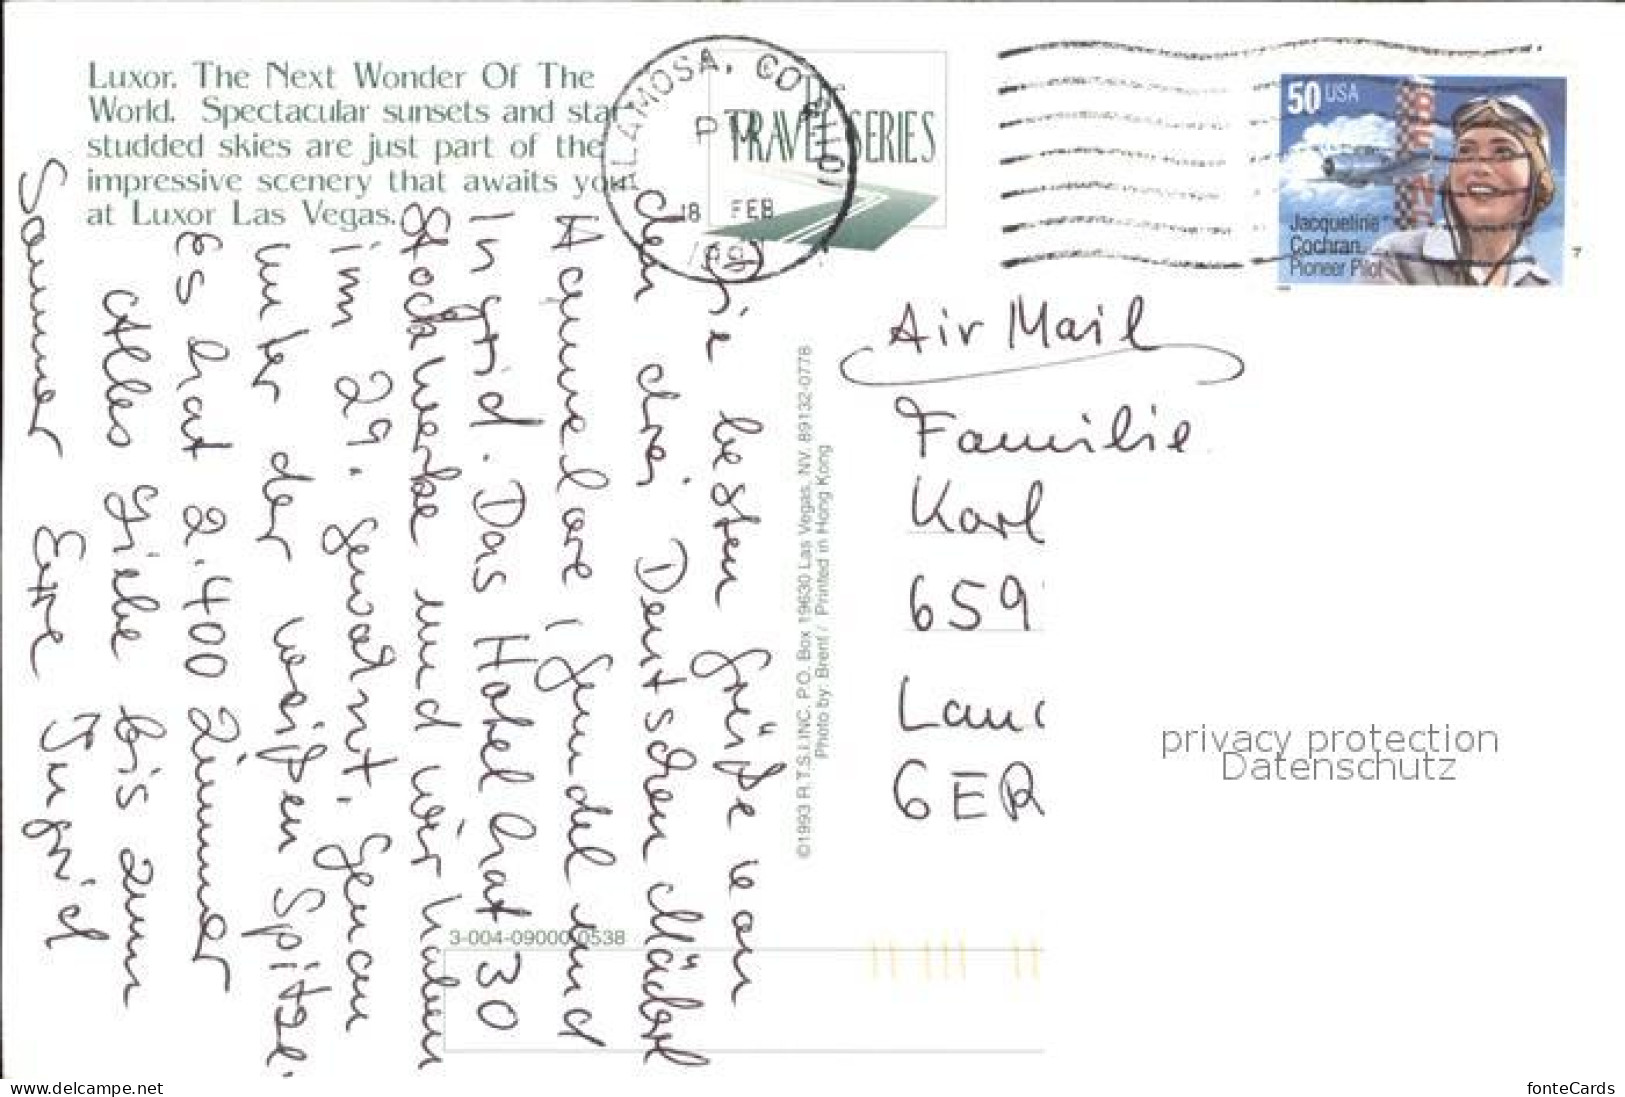 Luxor. The Next Wonder Of The
World. Spectacular sunsets and star
studded skies are just part of the
impressive scenery that awaits you
at Luxor Las Vegas.
ALAMOSA, CO
PM
18 FEB
THE
TRAVEL SERIES
50 USA
Jacqueline
Cochran
Pioneer Pilot
Die besten Grüße von
den drei Deutschen Mäderl
Annelore, Gundel und
Ingrid. Das Hotel hat 30
Stockwerke und wir haben
im 29. gewohnt. Genau
unter der weißen Spitze.
Es hat 2.400 Zimmer
Alles Liebe bis zum
Sommer Eure Ingrid
©1993 R.T.S.I. INC. P.O. Box 19630 Las Vegas, NV. 89132-0778
Photo by: Brent / Printed in Hong Kong
3-004-09000-0538
Air Mail
Familie
Karl
659
Lan
GER
privacy protection
Datenschutz
www.delcampe.net
fonteCards